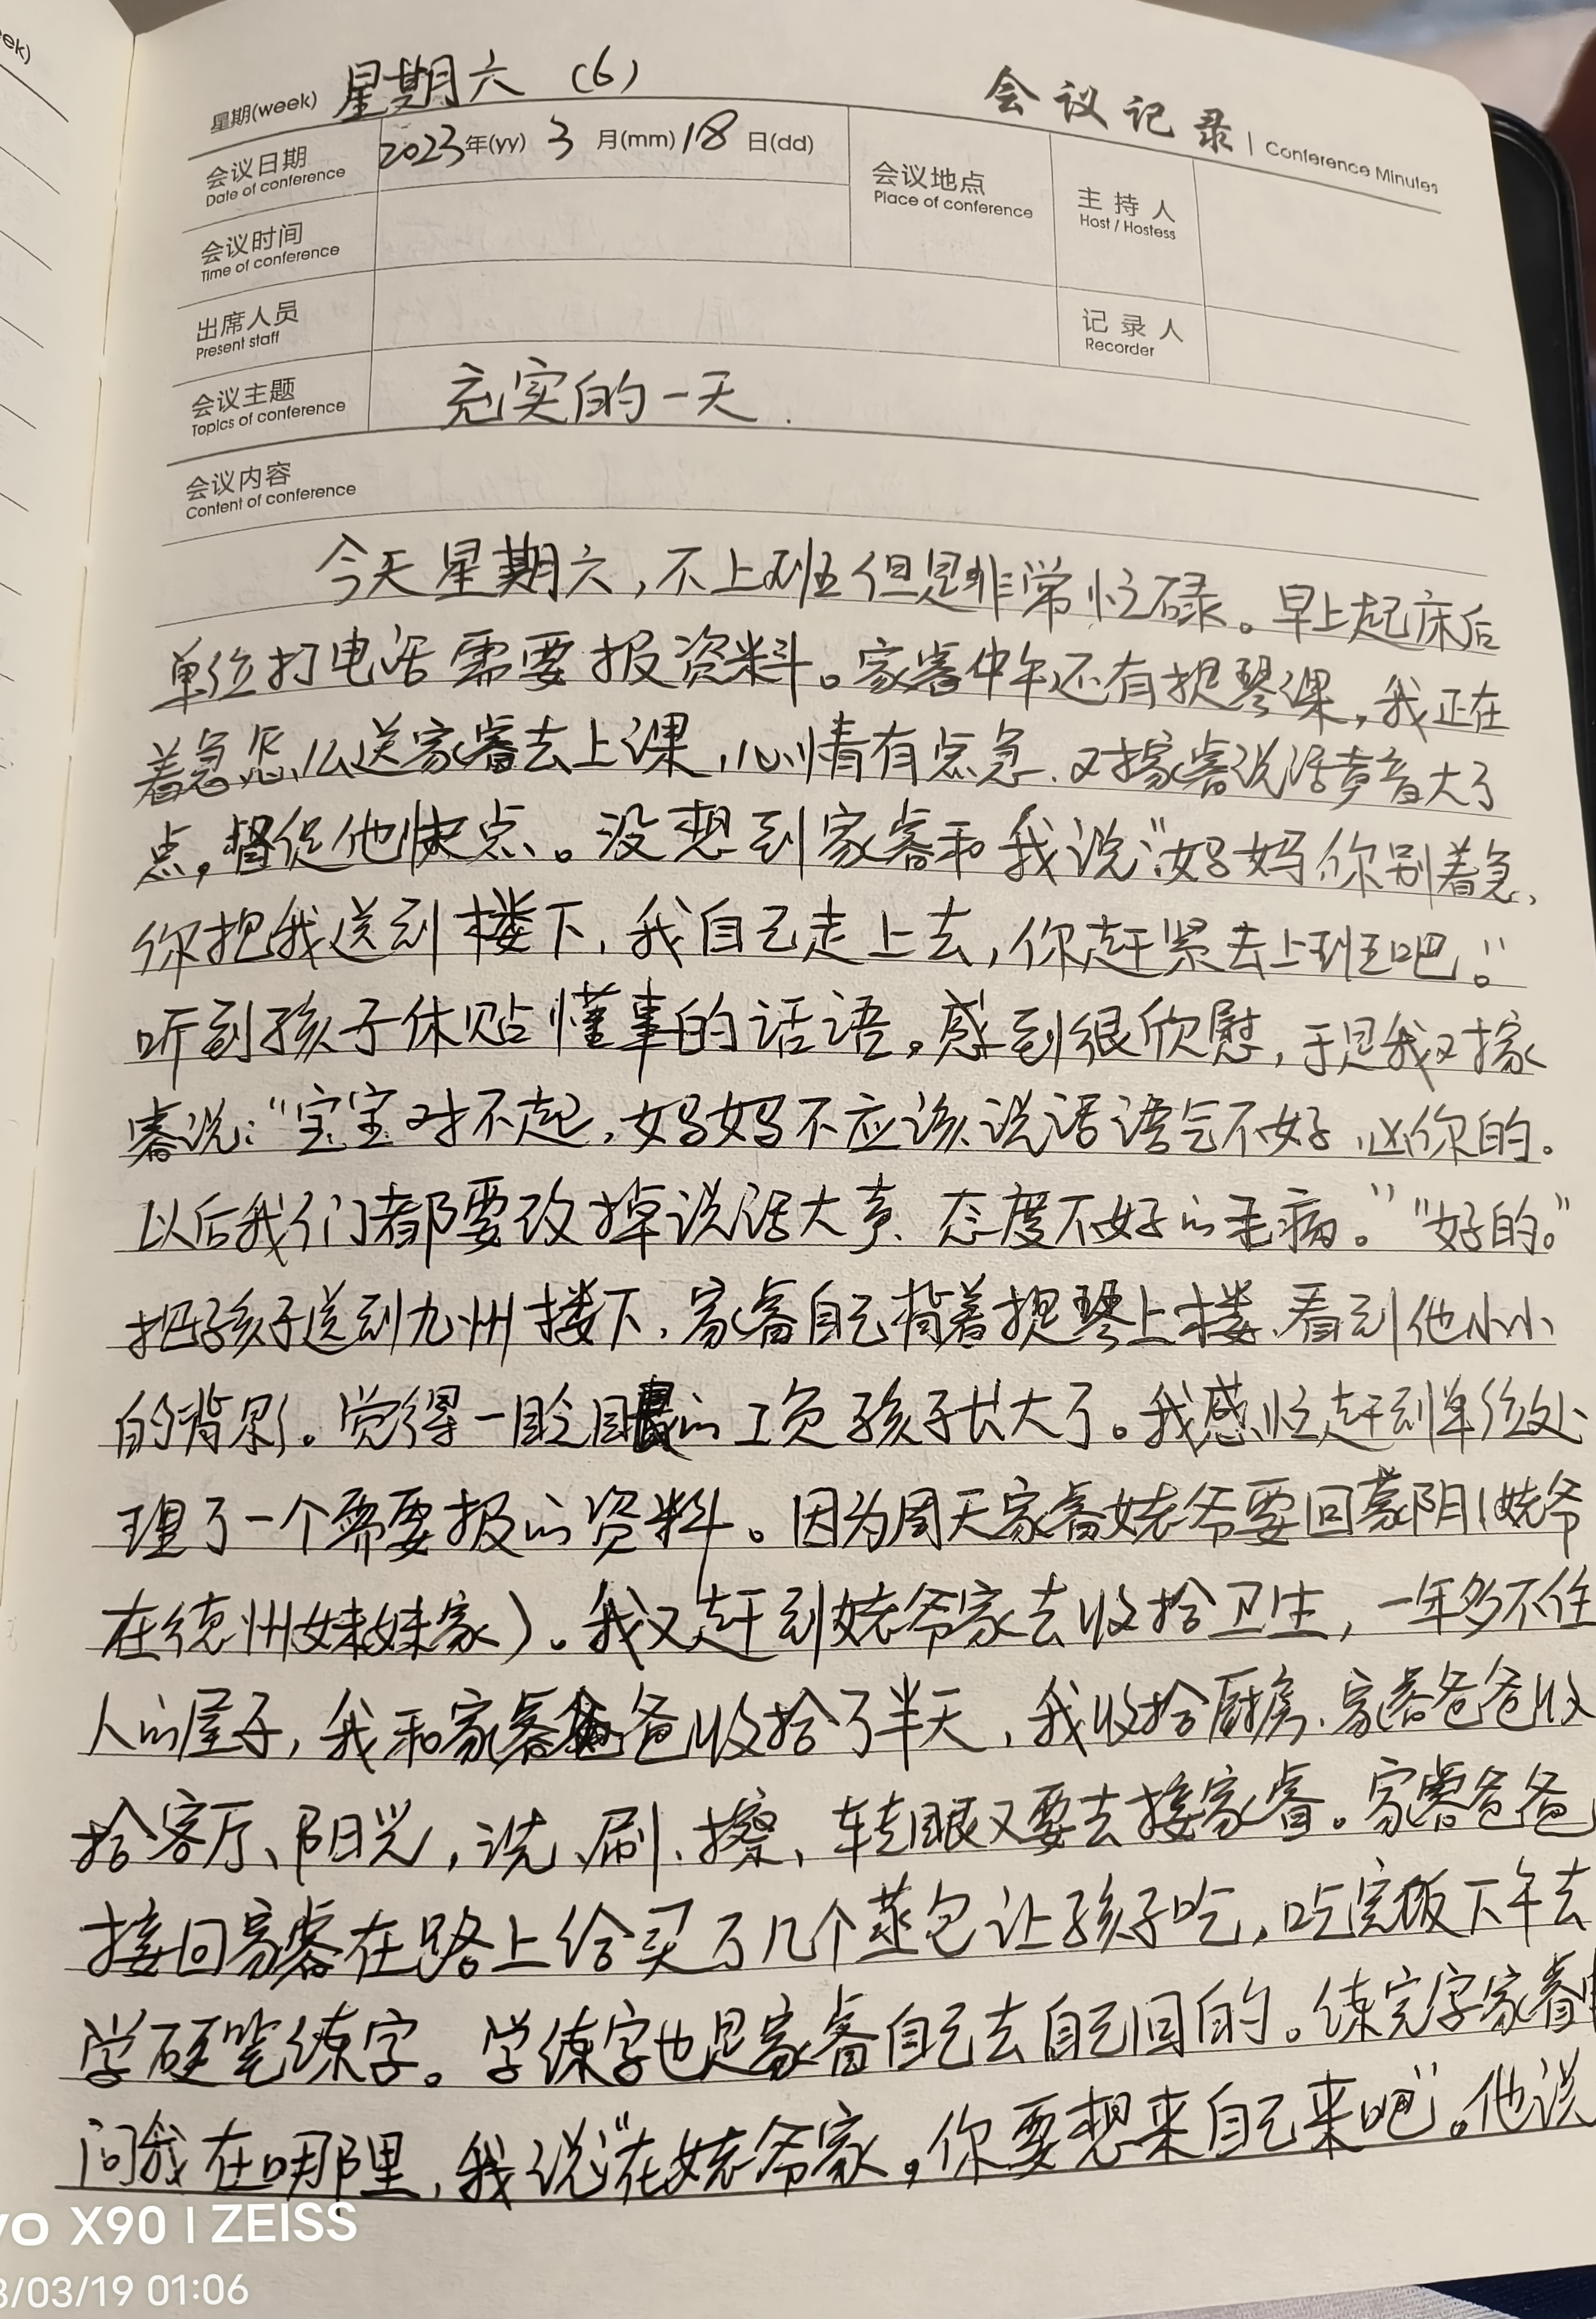 eek)
星期(week) 星期六 (6)
会议记录 | Conference Minutes
会议日期 2023年(yy) 3 月(mm) 18 日(dd) 会议地点 主持人
Date of conference Place of conference Host / Hostess
会议时间
Time of conference
出席人员 记录人
Present staff Recorder
会议主题 充实的一天.
Topics of conference
会议内容
Content of conference
今天星期六,不上班但是非常忙碌。早上起床后
单位打电话需要报资料。家睿中午还有提琴课,我正在
着急怎么送家睿去上课,心情有点急.对家睿说话声音大了
点,督促他快点。没想到家睿和我说:“妈妈你别着急,
你把我送到楼下,我自己走上去,你赶紧去上班吧。”
听到孩子体贴懂事的话语,感到很欣慰,于是我对家
睿说:“宝宝对不起,妈妈不应该说话语气不好凶你的。
以后我们都要改掉说话大声、态度不好的毛病。”“好的。”
把孩子送到九州楼下,家睿自己背着提琴上楼,看到他小小
的背影。觉得一眨眼的工负孩子长大了。我感忙赶到单位处
理了一个需要报的资料。因为周天家睿姥爷要回蒙阴(姥爷
在德州妹妹家)。我又赶到姥爷家去收拾卫生,一年多不住
人的屋子,我和家睿爸爸收拾了半天,我收拾厨房、家睿爸爸收
拾客厅、阳光,洗、刷、擦、转眼又要去接家睿。家睿爸爸
接回家睿在路上给买了几个蒸包让孩子吃,吃完饭下午去
学硬笔练字。学练字也是家睿自己去自己回的。练完字家睿
问我在哪里,我说“在姥爷家,你要想来自己来吧”。他说
vo X90 | ZEISS
3/03/19 01:06